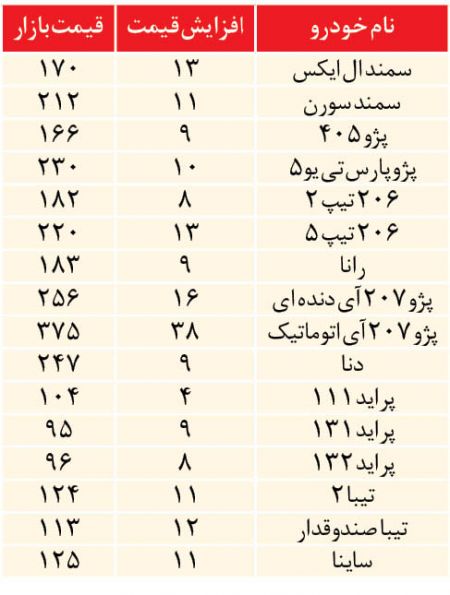 نام خودرو افزایش قیمت قیمت بازار
سمند ال ایکس ۱۳ ۱۷۰
سمند سورن ۱۱ ۲۱۲
پژو ۴۰۵ ۹ ۱۶۶
پژو پارس تی یو ۵ ۱۰ ۲۳۰
۲۰۶ تیپ ۲ ۸ ۱۸۲
۲۰۶ تیپ ۵ ۱۳ ۲۲۰
رانا ۹ ۱۸۳
پژو ۲۰۷ آی دنده ای ۱۶ ۲۵۶
پژو ۲۰۷ آی اتوماتیک ۳۸ ۳۷۵
دنا ۹ ۲۴۷
پراید ۱۱۱ ۴ ۱۰۴
پراید ۱۳۱ ۹ ۹۵
پراید ۱۳۲ ۸ ۹۶
تیبا ۲ ۱۱ ۱۲۴
تیبا صندوقدار ۱۲ ۱۱۳
ساینا ۱۱ ۱۲۵